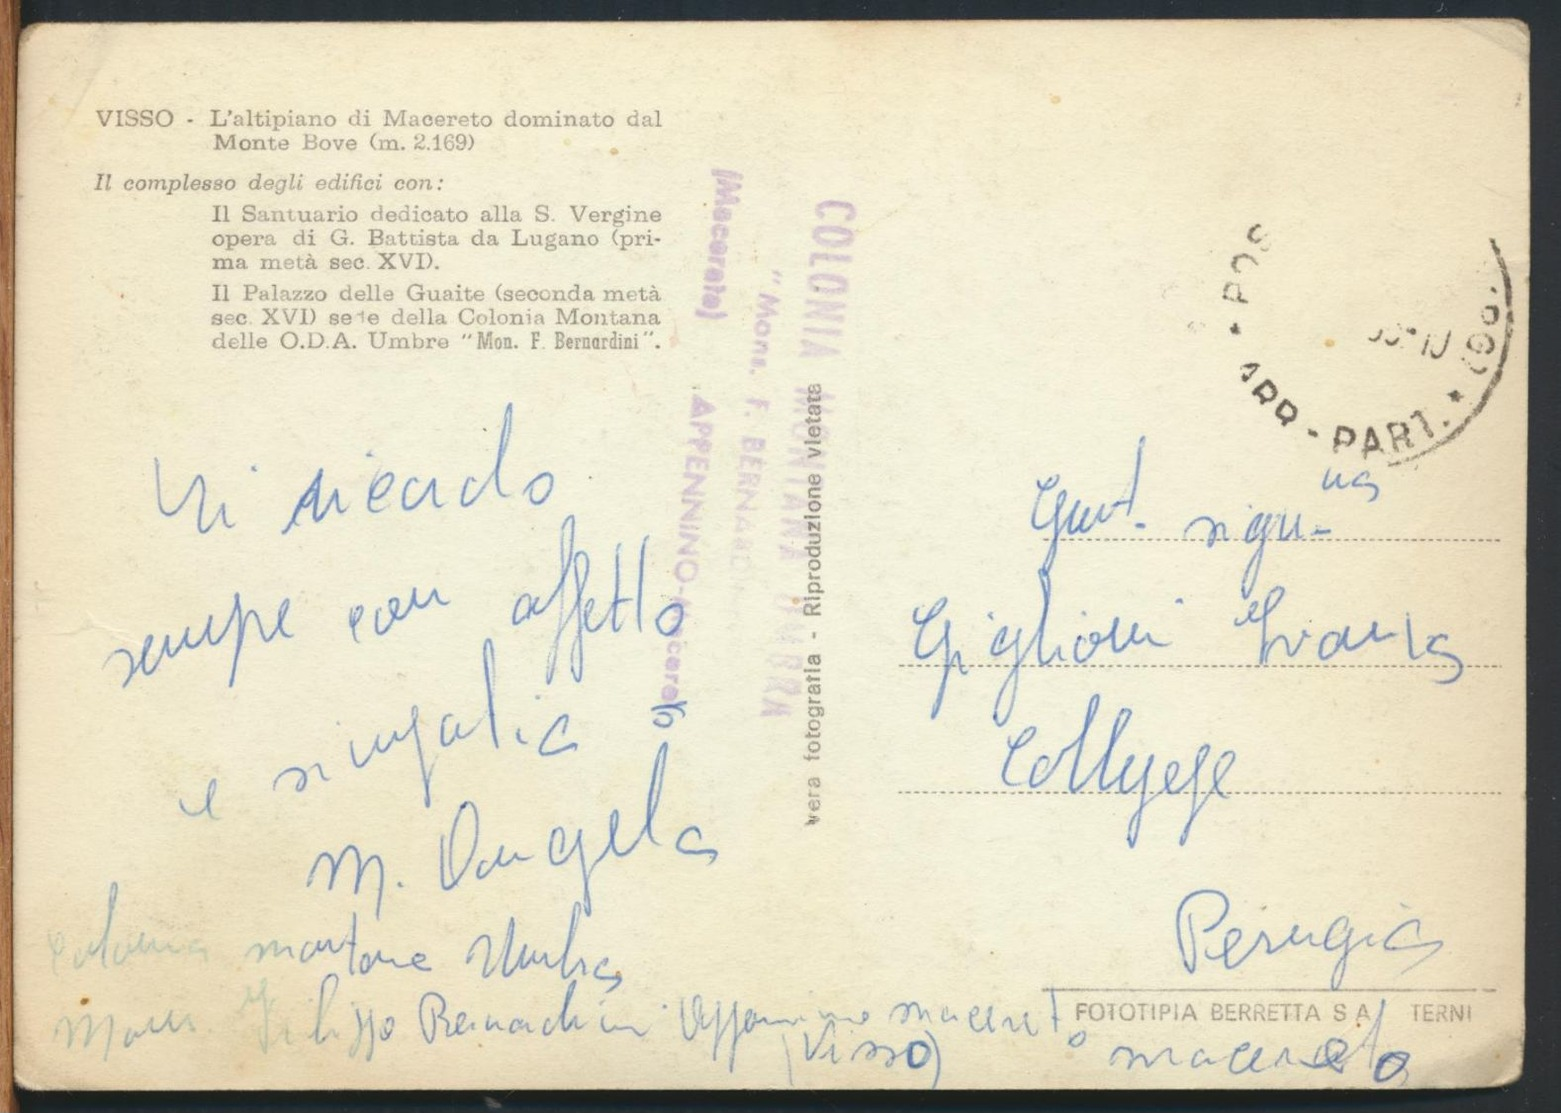 VISSO - L'altipiano di Macereto dominato dal
Monte Bove (m. 2.169)
Il complesso degli edifici con:
Il Santuario dedicato alla S. Vergine
opera di G. Battista da Lugano (pri-
ma metà sec. XVI).
Il Palazzo delle Guaite (seconda metà
sec. XVI) sede della Colonia Montana
delle O.D.A. Umbre "Mon. F. Bernardini".
Vi ricordo
sempre con affetto
e
M. Angela
Colonia montana Umbra
Mons. Filippo Bernardini Appennino Macereto
(Visso)
COLONIA MONTANA UMBRA
"Mons. F. BERNARDINI
APPENNINO-Macereto
(Macerata)
vera fotografia - Riproduzione vietata
POS
ARR - PART.
Gent. sigri-na
Giglioni Ivana
Collepepe
Perugia
FOTOTIPIA BERRETTA S A TERNI